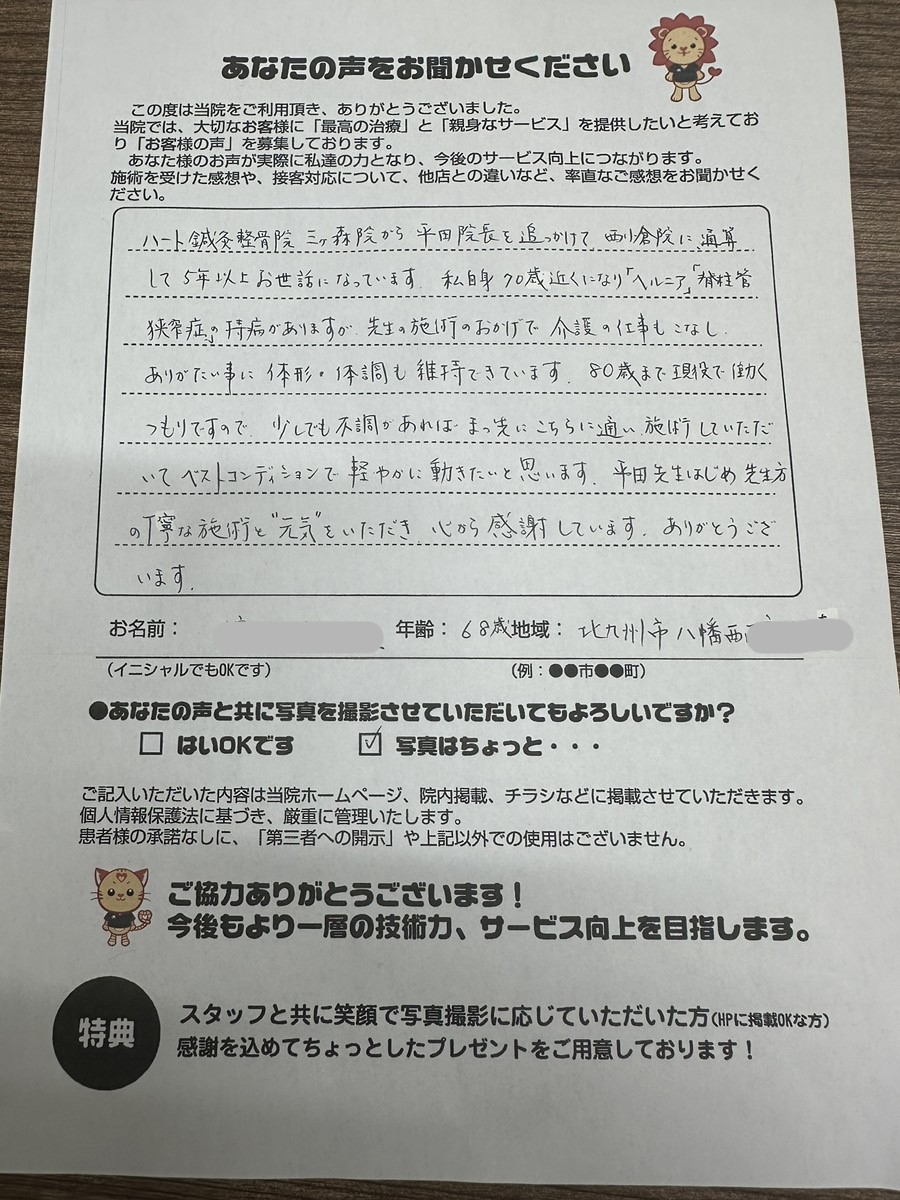 あなたの声をお聞かせください
この度は当院をご利用頂き、ありがとうございました。
当院では、大切なお客様に「最高の治療」と「親身なサービス」を提供したいと考えてお
り「お客様の声」を募集しております。
あなた様のお声が実際に私達の力となり、今後のサービス向上につながります。
施術を受けた感想や、接客対応について、他店との違いなど、率直なご感想をお聞かせく
ださい。
ハート鍼灸整骨院 三ヶ森院から 平田院長を追っかけて 西小倉院に通算
して5年以上お世話になっています。私自身70歳近くになり「ヘルニア」「脊柱管
狭窄症」の持病がありますが、先生の施術のおかげで 介護の仕事もこなし、
ありがたい事に 体形・体調も維持できています。80歳まで現役で働く
つもりですので、少しでも不調があれば まっ先にこちらに通い、施術していただ
いて ベストコンディションで 軽やかに動きたいと思います。平田先生はじめ 先生方
の丁寧な施術と"元気"をいただき 心から感謝しています。ありがとうござ
います。
お名前: 年齢:68歳 地域: 北九州市八幡西
(イニシャルでもOKです) (例:●●市●●町)
●あなたの声と共に写真を撮影させていただいてもよろしいですか?
□ はいOKです ☑ 写真はちょっと・・・
ご記入いただいた内容は当院ホームページ、院内掲載、チラシなどに掲載させていただきます。
個人情報保護法に基づき、厳重に管理いたします。
患者様の承諾なしに、「第三者への開示」や上記以外での使用はございません。
ご協力ありがとうございます!
今後もより一層の技術力、サービス向上を目指します。
特典
スタッフと共に笑顔で写真撮影に応じていただいた方(HPに掲載OKな方)
感謝を込めてちょっとしたプレゼントをご用意しております!